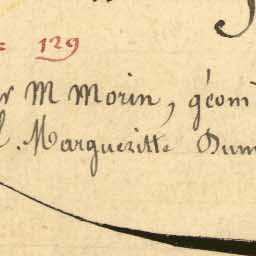 = 129
r M Morin, géom
l. Margueritte Dum